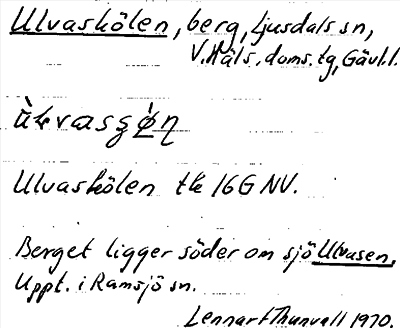 Ulvaskölen, berg, Ljusdals sn,
V. Häls. doms. tg, Gävl. l.
Ulvaskölen tk 16G NV.
Berget ligger söder om sjö Ulvasen,
Uppt. i Ramsjö sn.
Lennart Thunvall 1970.